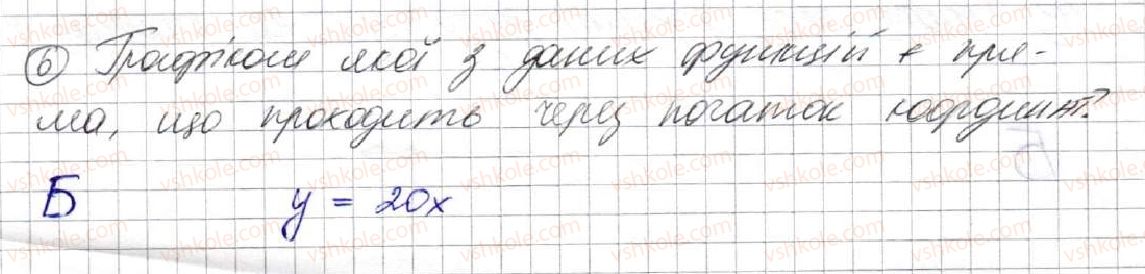 6 Графіком якої з даних функцій є пря-
ма, що проходить через початок координат?
Б y = 20x